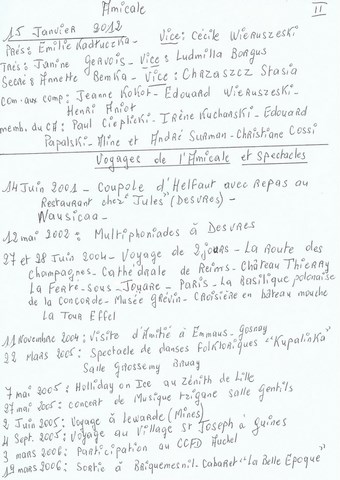 Amicale
11
15 Janvier 2012
Prés: Emilie Kadtuczka - Vice: Cécile Wieruszeski
Trés: Janine Gervois - Vice: Ludmilla Borgus
Secré: Annette Bemka - Vice: Chrzaszcz Stasia
Com. aux comp: Jeanne Kokot - Edouard Wieruszeski -
Henri Aniot
memb. du CA: Paul Cieplicki - Irène Kuchanski - Edouard
Papalski - Aline et André Surman - Christiane Cossi
Voyages de l'Amicale et Spectacles
14 Juin 2001 - Coupole d'Helfaut avec repas au
Restaurant chez "Jules" (Desvres) -
Nausicaa -
12 mai 2002 : Multiphoniades à Desvres
27 et 28 Juin 2004 - Voyage de 2 jours - La Route des
champagnes - Cathédrale de Reims - Château Thierry
La Ferte-sous-Jouare - Paris - La Basilique polonaise
de la concorde - Musée Grévin - Croisière en bâteau mouche
La Tour Eiffel
11 Novembre 2004 : Visite d'Amitié à Emmaus - Gosnay
22 mars 2005 : Spectacle de danses folkloriques "Kupalinka"
Salle Grossemy Bruay
7 mai 2005 : Holliday on Ice au Zénith de Lille
27 mai 2005 : concert de Musique tzigane salle Gentils
2 Juin 2005 : Voyage à Lewarde (Mines)
4 Sept. 2005 : Voyage au Village St Joseph à Guines
3 mars 2006 : Participation au CCFD Auchel
19 mars 2006 : Sortie à Briquemesnil - Cabaret "La Belle Epoque"